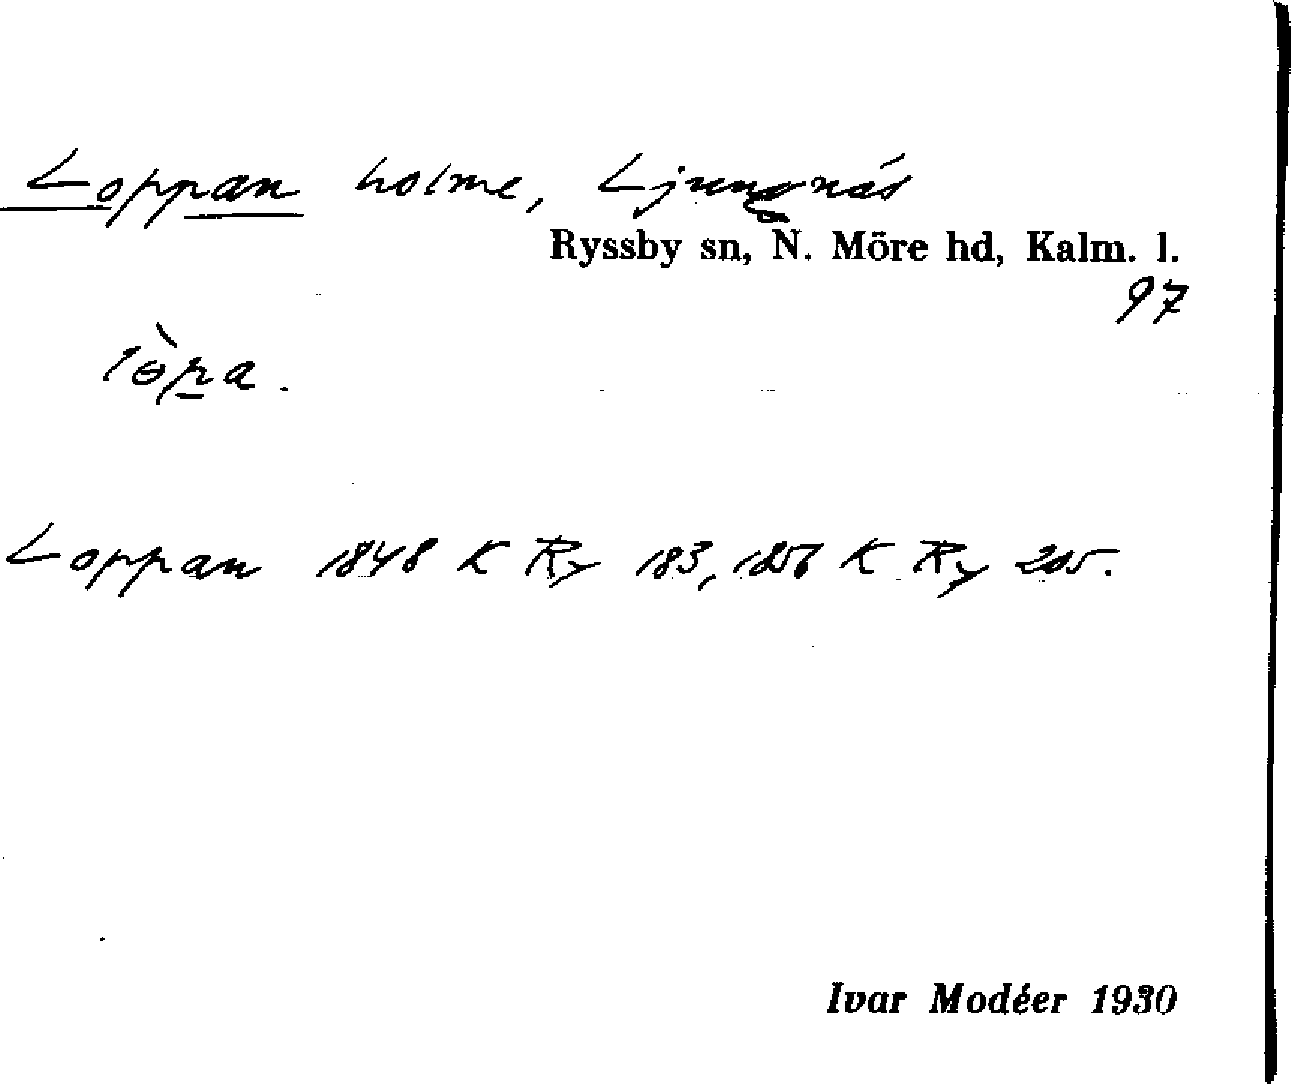 Loppan holme, Ljungnäs
Ryssby sn, N. Möre hd, Kalm. l.
97
lòpa.
Loppan 1848 K Ry 183, 1856 K Ry 205.
Ivar Modéer 1930